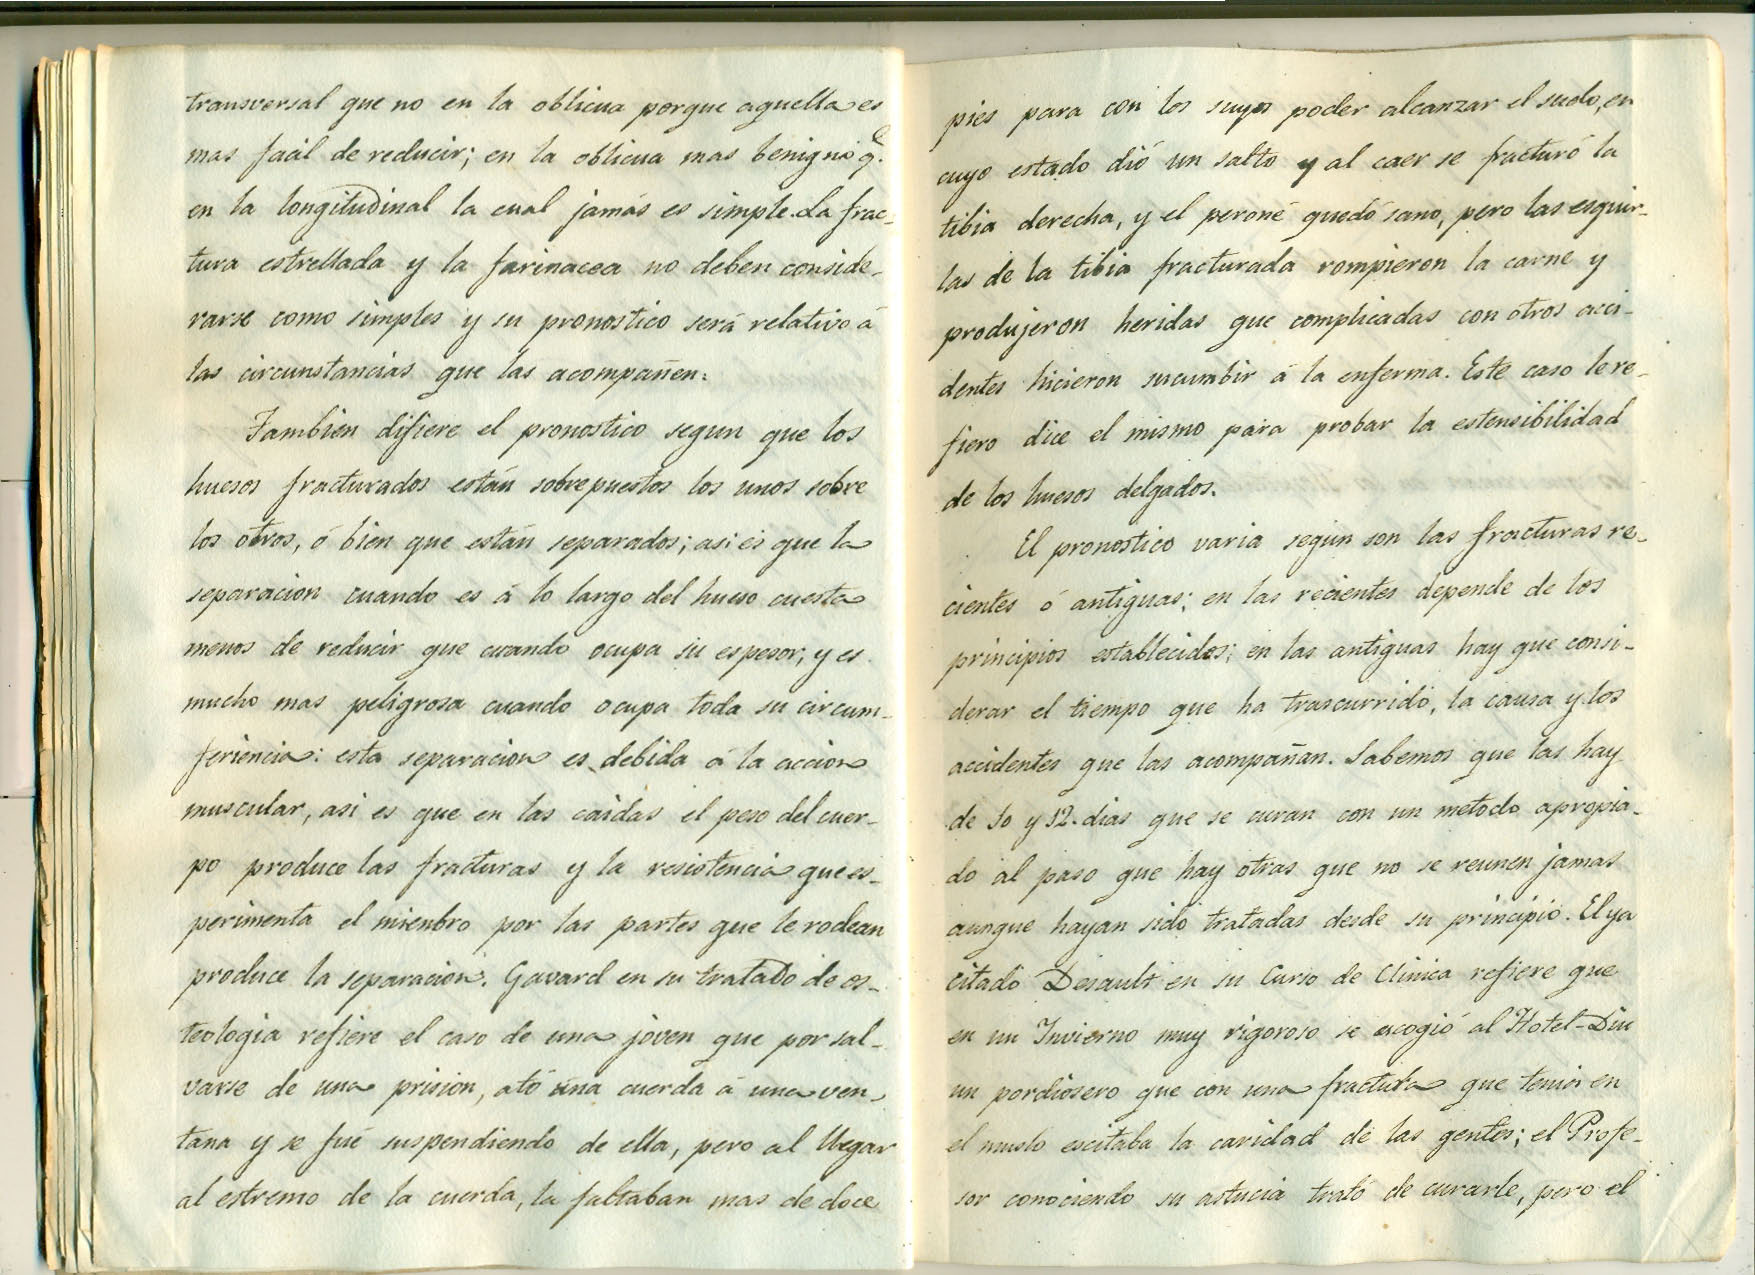 transversal que no en la oblicua porque aquella es
mas facil de reducir; en la oblicua mas benigno q.e
en la longitudinal la cual jamás es simple. La frac-
tura estrellada y la farinacea no deben conside-
rarse como simples y su pronostico será relativo á
las circunstancias que las acompañen.
Tambien difiere el pronostico segun que los
huesos fracturados están sobrepuestos los unos sobre
los otros, ó bien que están separados; asi es que la
separacion cuando es á lo largo del hueso cuesta
menos de reducir que cuando ocupa su espesor, y es
mucho mas peligrosa cuando ocupa toda su circum-
feriencia: esta separacion es debida á la accion
muscular, asi es que en las caidas el peso del cuer-
po produce las fracturas y la resistencia que es-
perimenta el miembro por las partes que le rodean
produce la separacion. Gavard en su tratado de os-
teologia refiere el caso de una joven que por sal-
varse de una prision, ató una cuerda á una ven-
tana y se fué suspendiendo de ella, pero al llegar
al estremo de la cuerda, la faltaban mas de doce
pies para con los suyos poder alcanzar el suelo, en
cuyo estado dió un salto y al caer se fracturó la
tibia derecha, y el peroné quedó sano, pero las esquir-
las de la tibia fracturada rompieron la carne y
produjeron heridas que complicadas con otros acci-
dentes hicieron sucumbir á la enferma. Este caso le re-
fiero dice el mismo para probar la estensibilidad
de los huesos delgados.
El pronostico varia segun son las fracturas re-
cientes ó antiguas; en las recientes depende de los
principios establecidos; en las antiguas hay que consi-
derar el tiempo que ha trascurrido, la causa y los
accidentes que las acompañan. Sabemos que las hay
de 10 y 12 dias que se curan con un metodo apropia-
do al paso que hay otras que no se reunen jamas
aunque hayan sido tratadas desde su principio. El ya
citado Desault en su Curso de Clinica refiere que
en un Invierno muy rigoroso se acogió al Hotel-Diu
un pordiosero que con una fractura que tenia en
el muslo escitaba la caridad de las gentes; el Profe-
sor conociendo su astucia trató de curarle, pero el